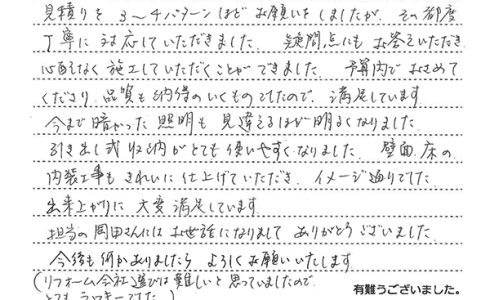 見積りを 3〜4パターンほど お願いをしましたが、その都度
丁寧に 対応していただきました 疑問点にもお答えいただき
心配なく 施工していただくことができました 予算内でおさめて
くださり 品質も納得のいくものでしたので、満足しています
今まで暗かった 照明も 見違えるほど明るくなりました
引き出し式収納がとても使いやすくなりました 壁面、床の
内装工事も きれいに 仕上げていただき、イメージ通りでした
出来上がりに 大変 満足しています
担当の岡田さんには お世話になりまして ありがとうございました
今後も何かありましたら よろしくお願いいたします
(リフォーム会社選びは難しいと思っていましたので、
とてもラッキーでした)
有難うございました。